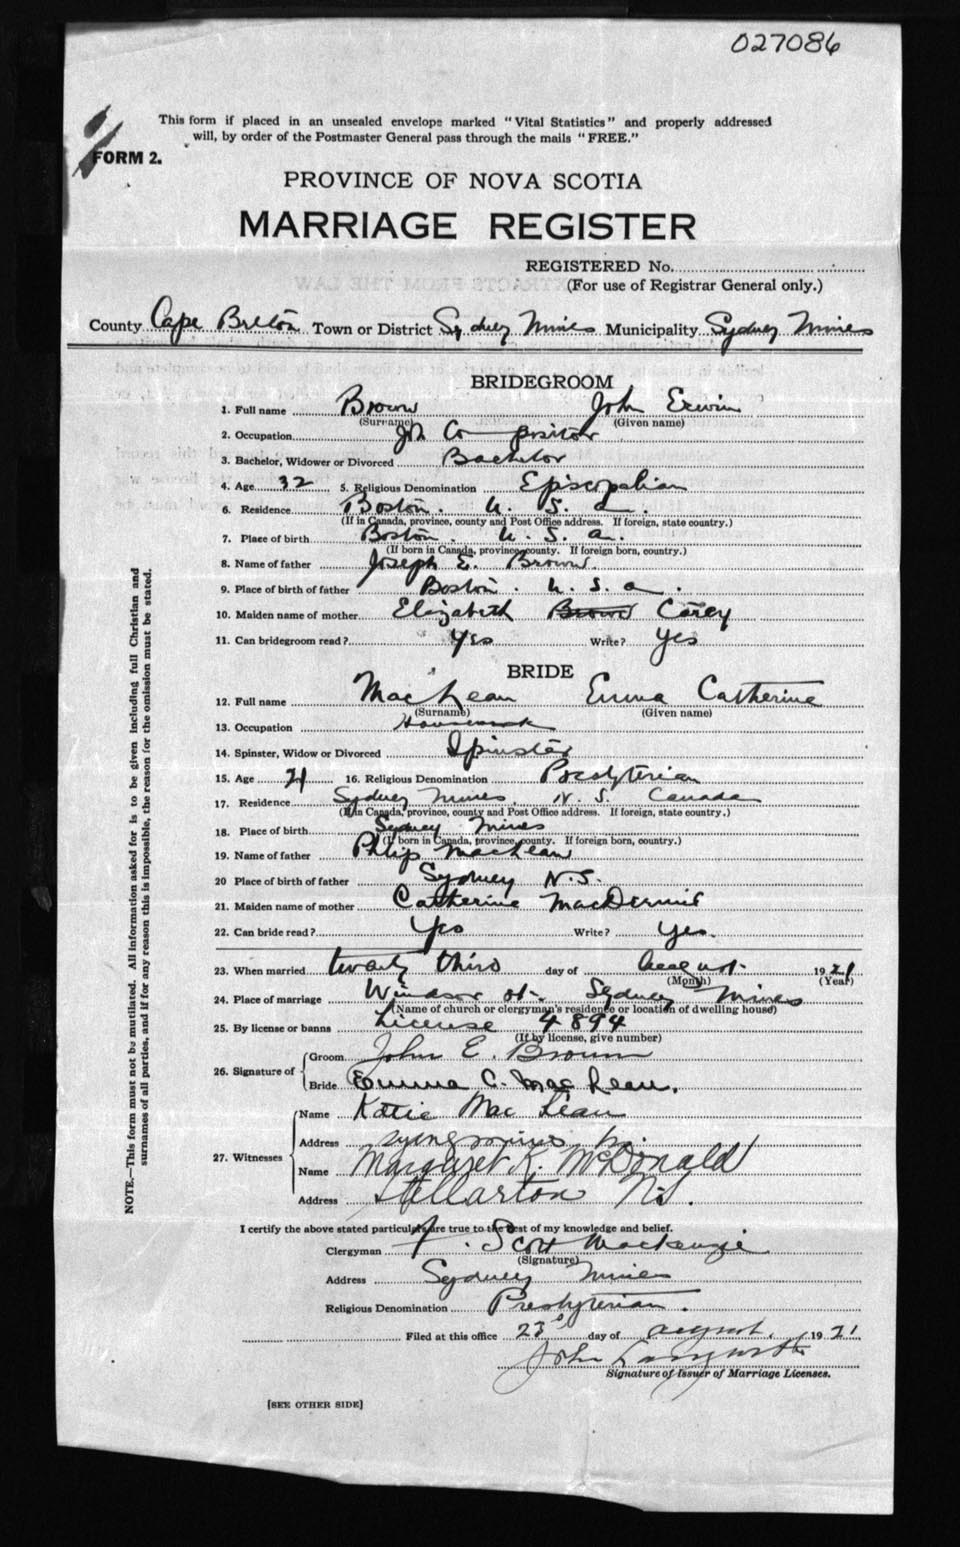 027086
This form if placed in an unsealed envelope marked "Vital Statistics" and properly addressed
will, by order of the Postmaster General pass through the mails "FREE."
FORM 2.
PROVINCE OF NOVA SCOTIA
MARRIAGE REGISTER
REGISTERED No.
(For use of Registrar General only.)
County Cape Breton Town or District Sydney Mines Municipality Sydney Mines
BRIDEGROOM
1. Full name Brown John Erwin
(Surname) (Given name)
2. Occupation Job Compositor
3. Bachelor, Widower or Divorced Bachelor
4. Age 32 5. Religious Denomination Episcopalian
6. Residence Boston. U. S. a.
(If in Canada, province, county and Post Office address. If foreign, state country.)
7. Place of birth Boston. U. S. a.
(If born in Canada, province, county. If foreign born, country.)
8. Name of father Joseph E. Brown.
9. Place of birth of father Boston. U. S. a.
10. Maiden name of mother Elizabeth Brown Carey
11. Can bridegroom read? Yes Write? Yes
BRIDE
12. Full name MacLean Emma Catherine
(Surname) (Given name)
13. Occupation Housework
14. Spinster, Widow or Divorced Spinster
15. Age 21 16. Religious Denomination Presbyterian
17. Residence Sydney Mines, N. S. Canada
(If in Canada, province, county and Post Office address. If foreign, state country.)
18. Place of birth Sydney Mines
(If born in Canada, province, county. If foreign born, country.)
19. Name of father Philip MacLean
20 Place of birth of father Sydney N.S.
21. Maiden name of mother Catherine MacDermid
22. Can bride read? Yes Write? Yes.
23. When married twenty third day of August 1921
(Month) (Year)
24. Place of marriage Windsor St. Sydney Mines
(Name of church or clergyman's residence or location of dwelling house)
25. By license or banns License 4894
(If by license, give number)
26. Signature of
Groom John E. Brown
Bride Emma C. MacLean.
27. Witnesses
Name Katie MacLean
Address
Name Margaret K. McDonald
Address Stellarton N.S.
I certify the above stated particulars are true to the best of my knowledge and belief.
Clergyman Scott Mackenzie
(Signature)
Address Sydney Mines
Religious Denomination Presbyterian.
Filed at this office 23d day of August, 1921
John
Signature of Issuer of Marriage Licenses.
[SEE OTHER SIDE]
NOTE.—This form must not be mutilated. All information asked for is to be given including full Christian and
surnames of all parties, and if for any reason this is impossible, the reason for the omission must be stated.